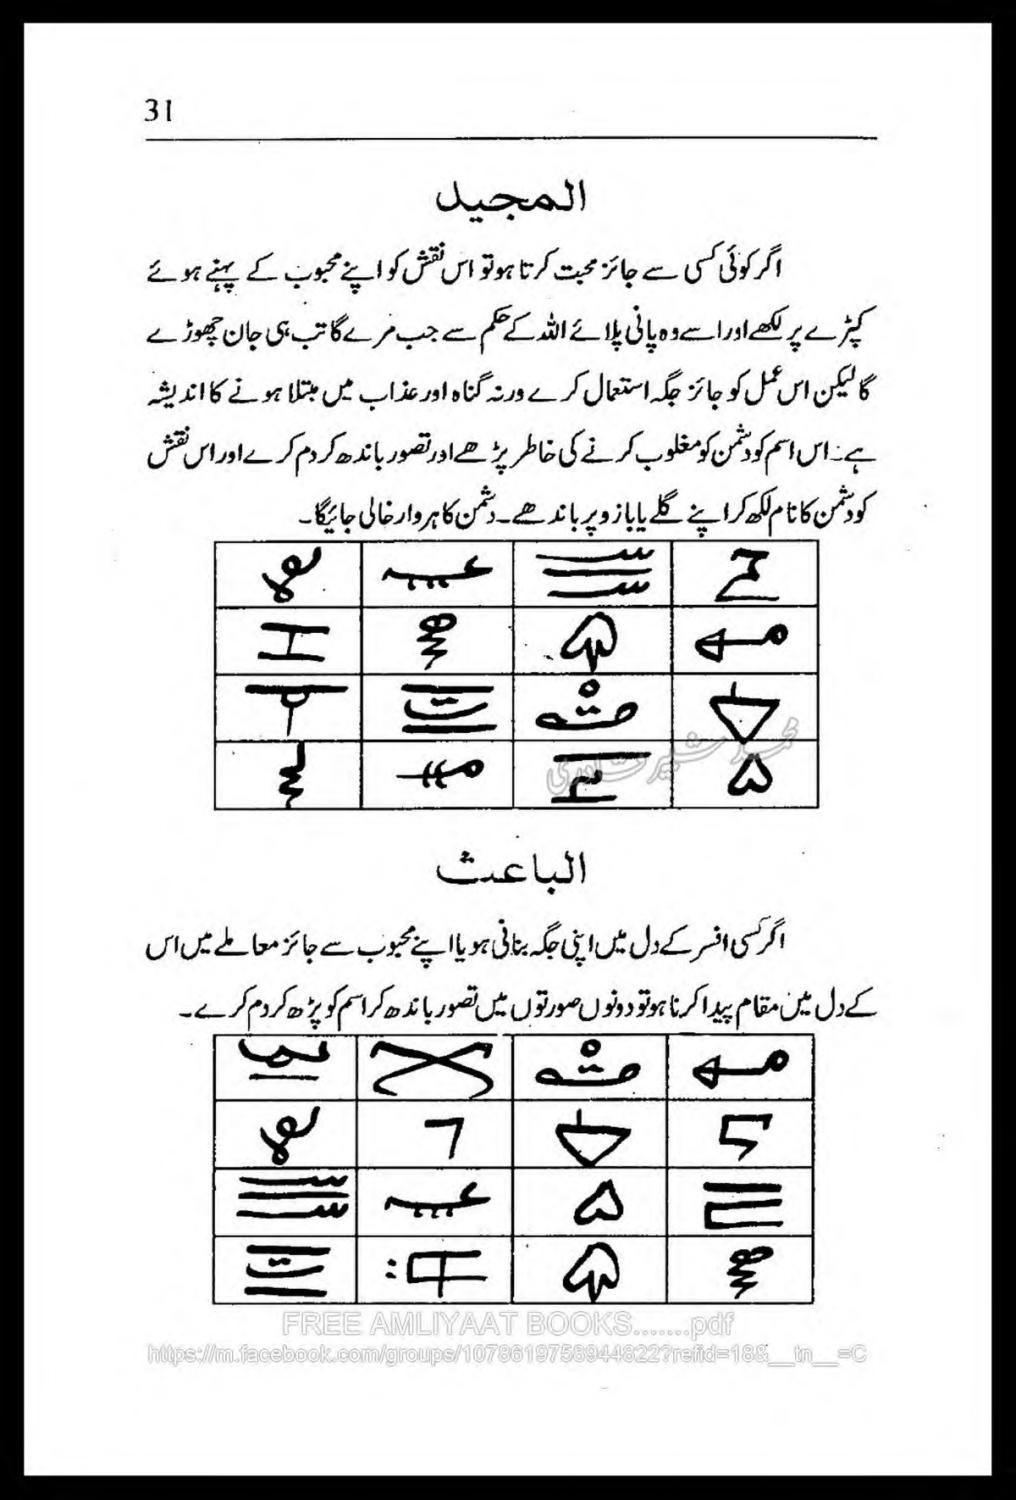 31
المجید
اگر کوئی کسی سے جائز محبت کرتا ہو تو اس نقش کو اپنے محبوب کے پہنے ہوئے
کپڑے پر لکھے اور اسے وہ پانی پلائے اللہ کے حکم سے جب مرے گا تب ہی جان چھوڑے
گا لیکن اس عمل کو جائز جگہ استعمال کرے ورنہ گناہ اور عذاب میں مبتلا ہونے کا اندیشہ
ہے۔ اس اسم کو دشمن کو مغلوب کرنے کی خاطر پڑھے اور تصور باندھ کر دم کرے اور اس نقش
کو دشمن کا نام لکھ کر اپنے گلے یا بازو پر باندھے۔ دشمن کا ہر وار خالی جائیگا۔
الباعث
اگر کسی افسر کے دل میں اپنی جگہ بنانی ہو یا اپنے محبوب سے جائز معاملے میں اس
کے دل میں مقام پیدا کرنا ہو تو دونوں صورتوں میں تصور باندھ کر اسم کو پڑھ کر دم کرے۔
FREE AMLIYAAT BOOKS.......pdf
https://m.facebook.com/groups/1078619758944822?refid=18&__tn__=C